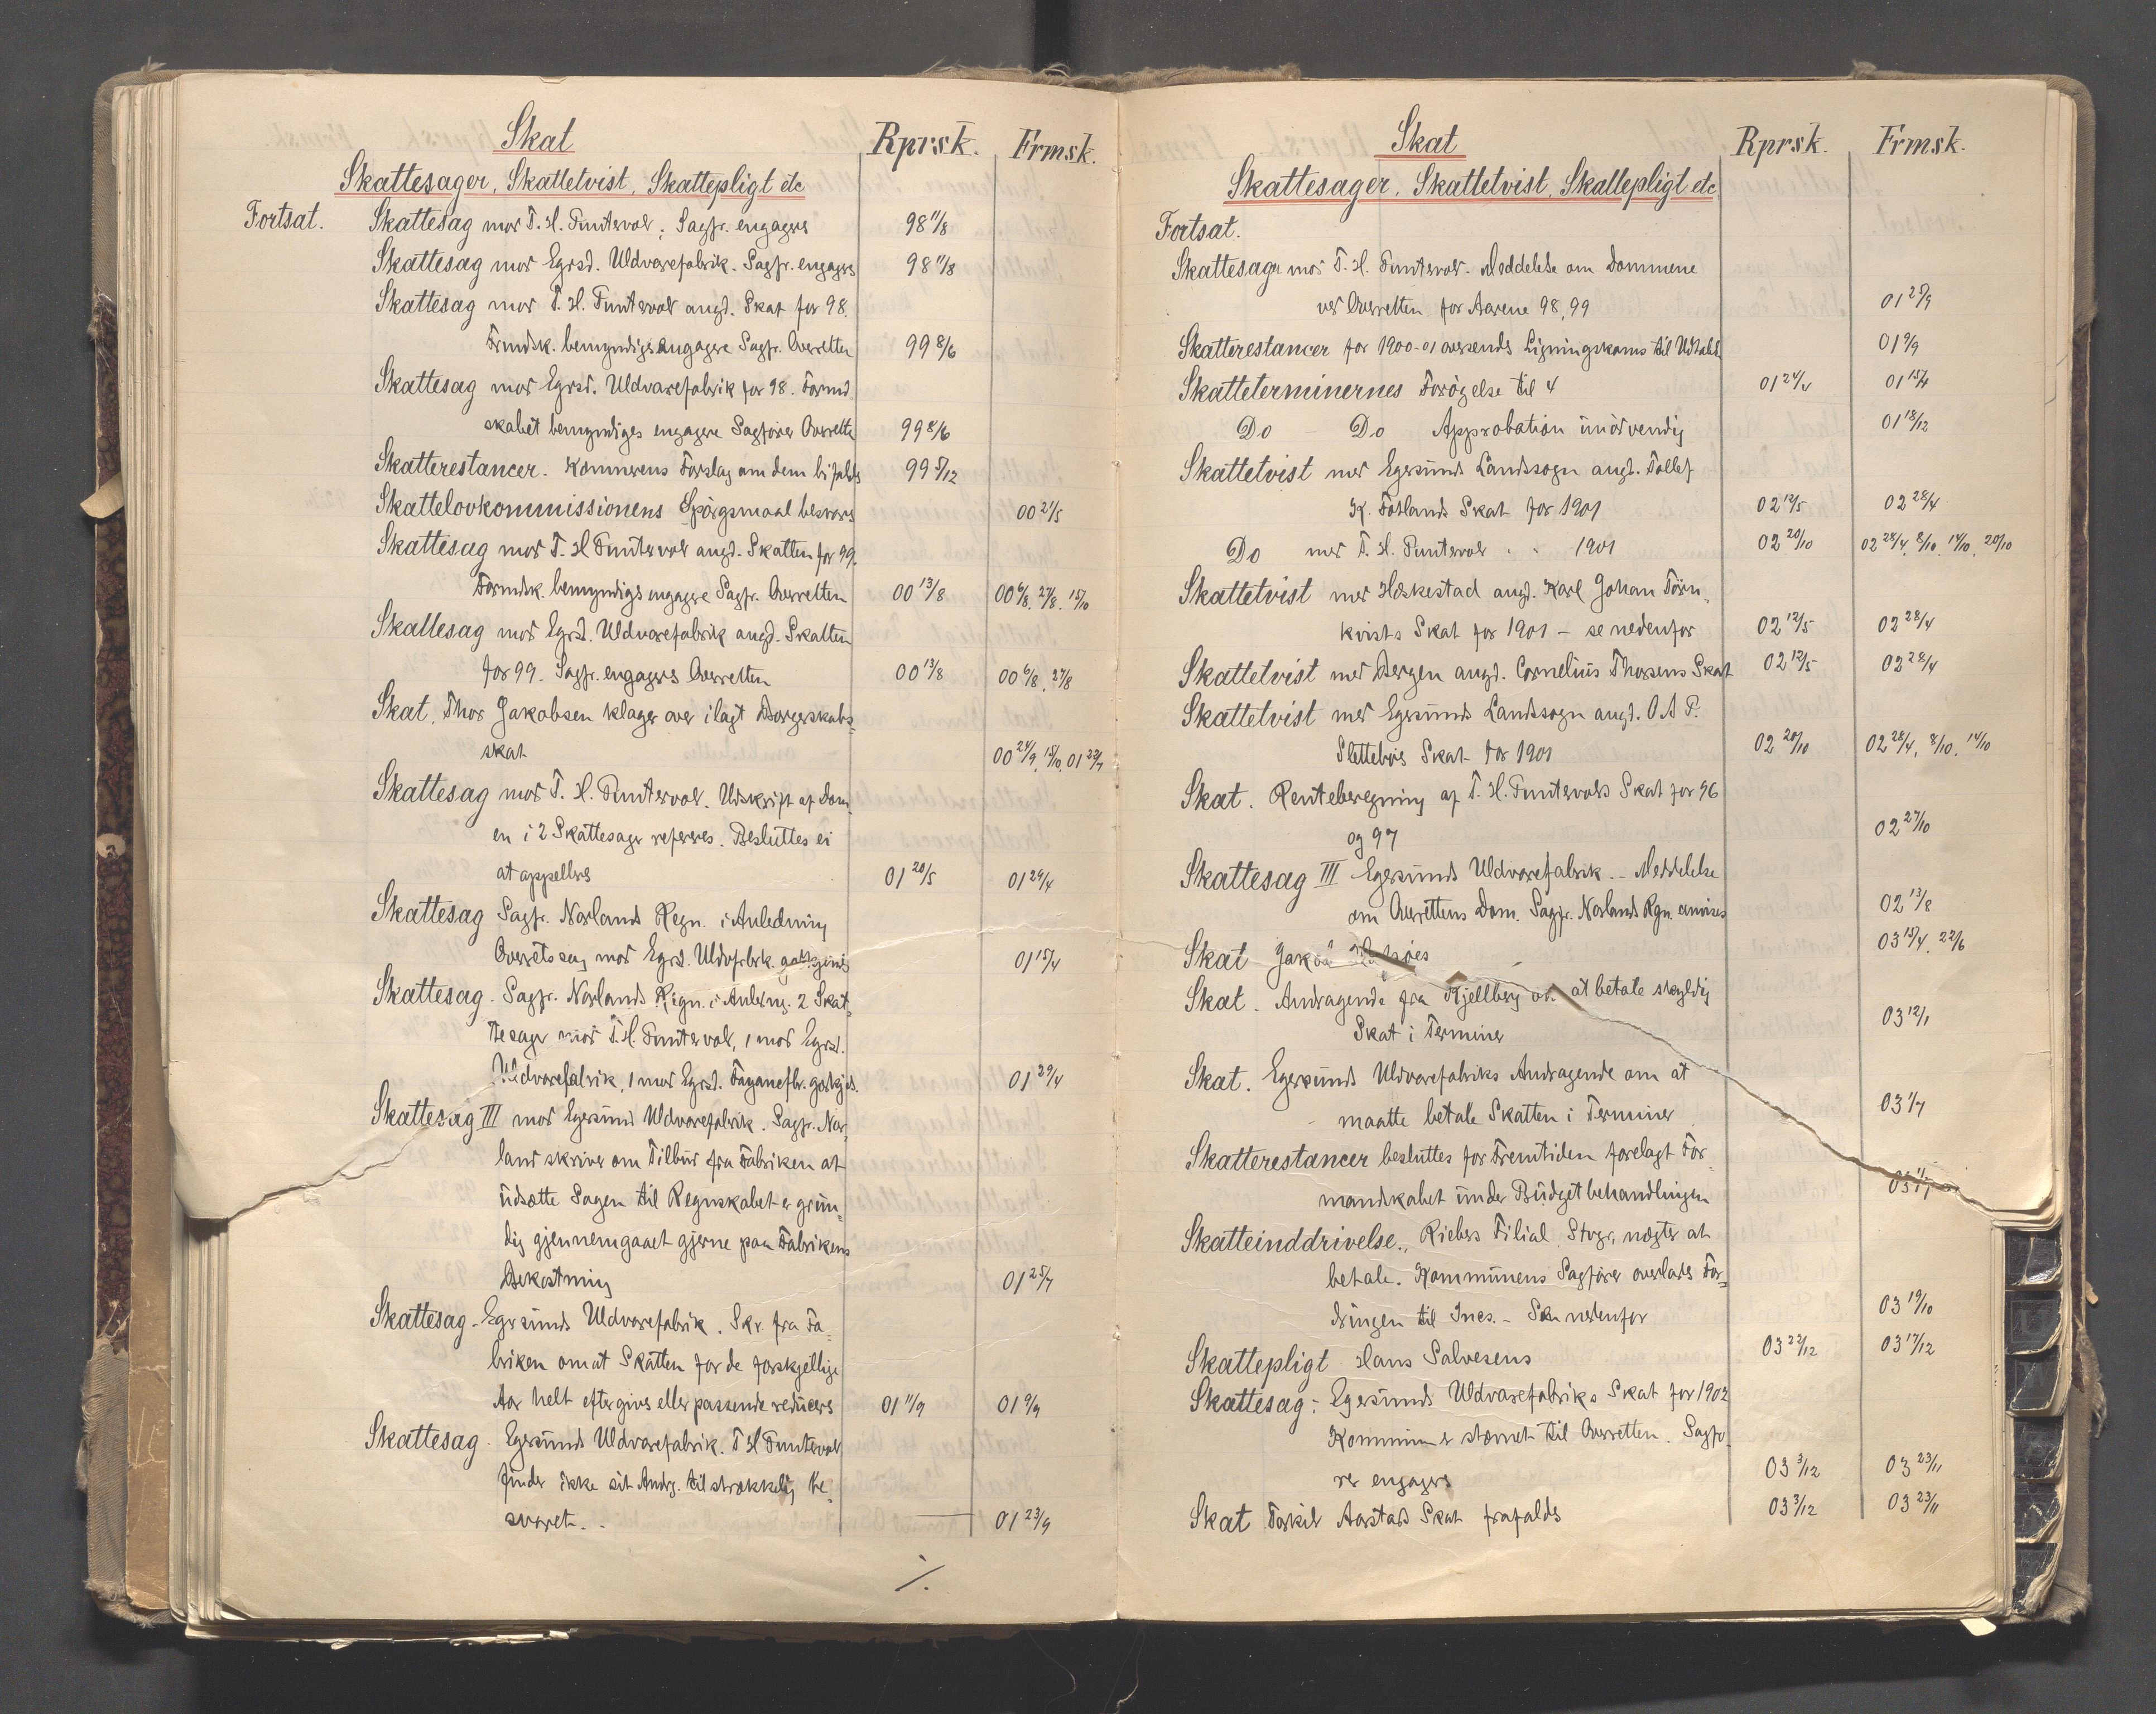 Skat Rprsk. Frmsk.
Skattesager, Skattetvist, Skattepligt etc
Fortsat. Skattesag mod T. H. Puntervol; Sagfr. engagers 98 11/8
Skattesag mod Egrsd. Uldvarefabrik. Sagfr. engagrs 98 11/8
Skattesag mod T. H. Puntervol angd. Skat for 98.
Frmdsk. bemyndigs engagere Sagfr. Overretten 99 8/6
Skattesag mod Egrsd. Uldvarefabrik for 98. Formd
skabet bemyndiges engagere Sagfører Overrette 99 8/6
Skatterestancer. Kæmnerens Forslag om dem bifalds 99 5/12
Skattelovkommissionens Spörgsmaal besvares 00 21/5
Skattesag mod T. H. Puntervol angd. Skatten for 99.
Formdsk. bemyndigs engagere Sagfr. Overretten 00 13/8 00 6/8. 27/8. 15/10
Skattesag mod Egrsd. Uldvarefabrik angd. Skatten
for 99. Sagfr. engagers Overretten 00 13/8 00 6/8, 27/8
Skat. Thor Jakobsen klager over ilagt Borgerskabs
skat 00 24/9, 15/10, 01 22/7
Skattesag mod T. H. Puntervol. Udskrift af Dom
en i 2 Skattesager refereres. Besluttes ei
at appellers 01 20/5 01 29/4
Skattesag Sagfr. Norlands Regn. i Anledning
Overretssag mod Egrsd. Uldvfbrk. godkjendes 01 15/4
Skattesag. Sagfr. Norlands Regn. i Anledng. 2 Skat
tesager mod T. H. Puntervol, 1 mod Egrsd.
Uldvarefabrik, 1 mod Egrsd. Fayancefbr. godkjds. 01 29/4
Skattesag III mod Egersund Uldvarefabrik. Sagfr. Nor
land skriver om Tilbud fra Fabriken at
udsætte Sagen til Regnskabet er grun
dig gjennemgaaet gjerne paa Fabrikens
Bekostning 01 25/7
Skattesag - Egersunds Uldvarefabrik. Skr. fra Fa
briken om at Skatten for de forskjellige
Aar helt eftergives eller passende reduceres 01 11/9 01 9/9
Skattesag. Egersunds Uldvarefabrik. T H Puntervol
finder ikke sit Andrg. tilstrækkelig be
svaret. — 01 23/9
./.
Skat Rprsk. Frmsk.
Skattesager, Skattetvist, Skattepligt etc
Fortsat.
Skattesager mod T. H. Puntervol. Meddelelse om Dommene
ved Overretten for Aarene 98, 99 01 25/9
Skatterestancer for 1900-01 oversends Ligningskoms til Udtalels. 01 9/9
Skatteterminernes Forögelse til 4 01 24/4 01 15/4
Do Do Approbation unödvendig 01 18/12
Skattetvist med Egersunds Landssogn angd. Tollef
K. Fotlands Skat for 1901 02 12/5 02 28/4
Do med T. H. Puntervol " " 1901 02 20/10 02 28/4, 8/10, 14/10, 20/10
Skattetvist med Heskestad angd. Karl Johan Törn
kvists Skat for 1901 – se nedenfor 02 12/5 02 28/4
Skattetvist med Bergen angd. Cornelius Thorsens Skat 02 12/5 02 28/4
Skattetvist med Egersunds Landssogn angd. O A P.
Slettebös Skat for 1901 02 20/10 02 28/4, 8/10. 14/10
Skat. Renteberegning af T. H. Puntervols Skat for 96
og 97 02 27/10
Skattesag III Egersunds Uldvarefabrik. – Meddelelse
om Overrettens Dom. Sagfr. Norlands Rgn. anvises 02 13/8
Skat Jakob 03 15/4, 22/6
Skat. Andragende fra Kjellberg om at betale skyldig
Skat i Terminer 03 12/1
Skat. Egersunds Uldvarefabriks Andragende om at
maatte betale Skatten i Terminer 03 1/7
Skatterestancer besluttes for Fremtiden forelagt For
mandskabet under Budgetbehandlingen 03 1/7
Skatteinddrivelse. Riebers Filial, Stvgr, nægter at
betale. Kommunens Sagfører overlades For
dringen til Incs. – Se nedenfor 03 19/10
Skattepligt Hans Salvesens 03 22/12 03 17/12
Skattesag: Egersunds Uldvarefabriks Skat for 1902
Kommunen stævnet til Overretten. Sagfø
rer engagers 03 3/12 03 23/11
Skat Torkil Aarstads Skat frafalds 03 3/12 03 23/11